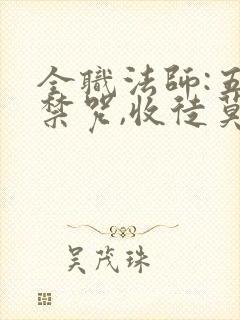 全職法師:五
禁咒,收徒莫
吴茂珠